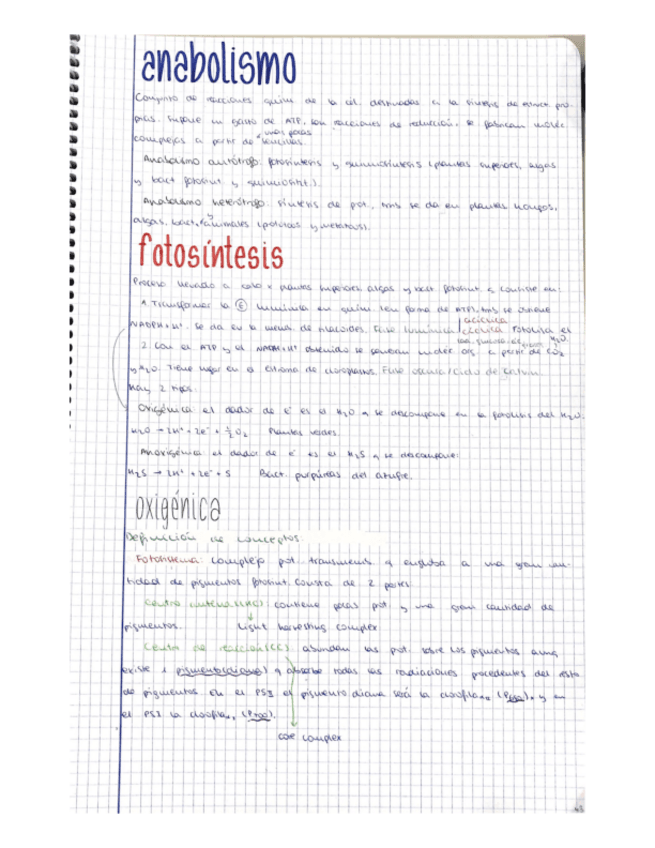 anabolismo
Conjunto de reacciones quím de la cél. destinadas a la síntesis de estruct pro-
pias. Supone un gasto de ATP, son reacciones de reducción, se fabrican moléc
más
complejas a partir de sencillas.
Anabolismo autótrofo: fotosíntesis y quimiosíntesis (plantas superiores, algas
y bact fotosint y quimiosint.).
Anabolismo heterótrofo: síntesis de pot., tmb se da en plantas hongos,
algas, bact, y animales (protozoos y metazoos).
fotosíntesis
Proceso llevado a cabo x plantas superiores, algas y bact fotosint q consiste en:
1. Transformar la E lumínica en quím. (en forma de ATP), tmb se obtiene
acíclica
NADPH+H⁺. Se da en la memb. de tilacoides. Fase lumínica / cíclica Fotólisis el
H₂O.
2. Con el ATP y el NADPH+H⁺ obtenido se generan moléc org. a partir de CO₂
y H₂O. Tiene lugar en el estroma de cloroplastos. Fase oscura/Ciclo de Calvin.
Hay 2 tipos.
Oxigénica: el dador de e⁻ es el H₂O q se descompone en la fotólisis del H₂O.
H₂O → 2H⁺ + 2e⁻ + ½O₂ Plantas verdes.
Anoxigénica: el dador de e⁻ es el H₂S q se descompone:
H₂S → 2H⁺ + 2e⁻ + S Bact. purpúreas del azufre.
oxigénica
Definición de conceptos
Fotosistema: complejo pot. transmemb. q engloba a una gran can-
tidad de pigmentos fotosint. Consta de 2 partes:
Centro antena (LHC) contiene pocas prot. y una gran cantidad de
pigmentos. Light harvesting complex
Centro de reacción (CC) abundan las pot. sobre los pigmentos aunq
existe 1 pigmento (diana) q absorbe todas las radiaciones procedentes del resto
de pigmentos. En el PSI el pigmento diana será la clorofila (P700), y en
el PSI la clorofila
core complex